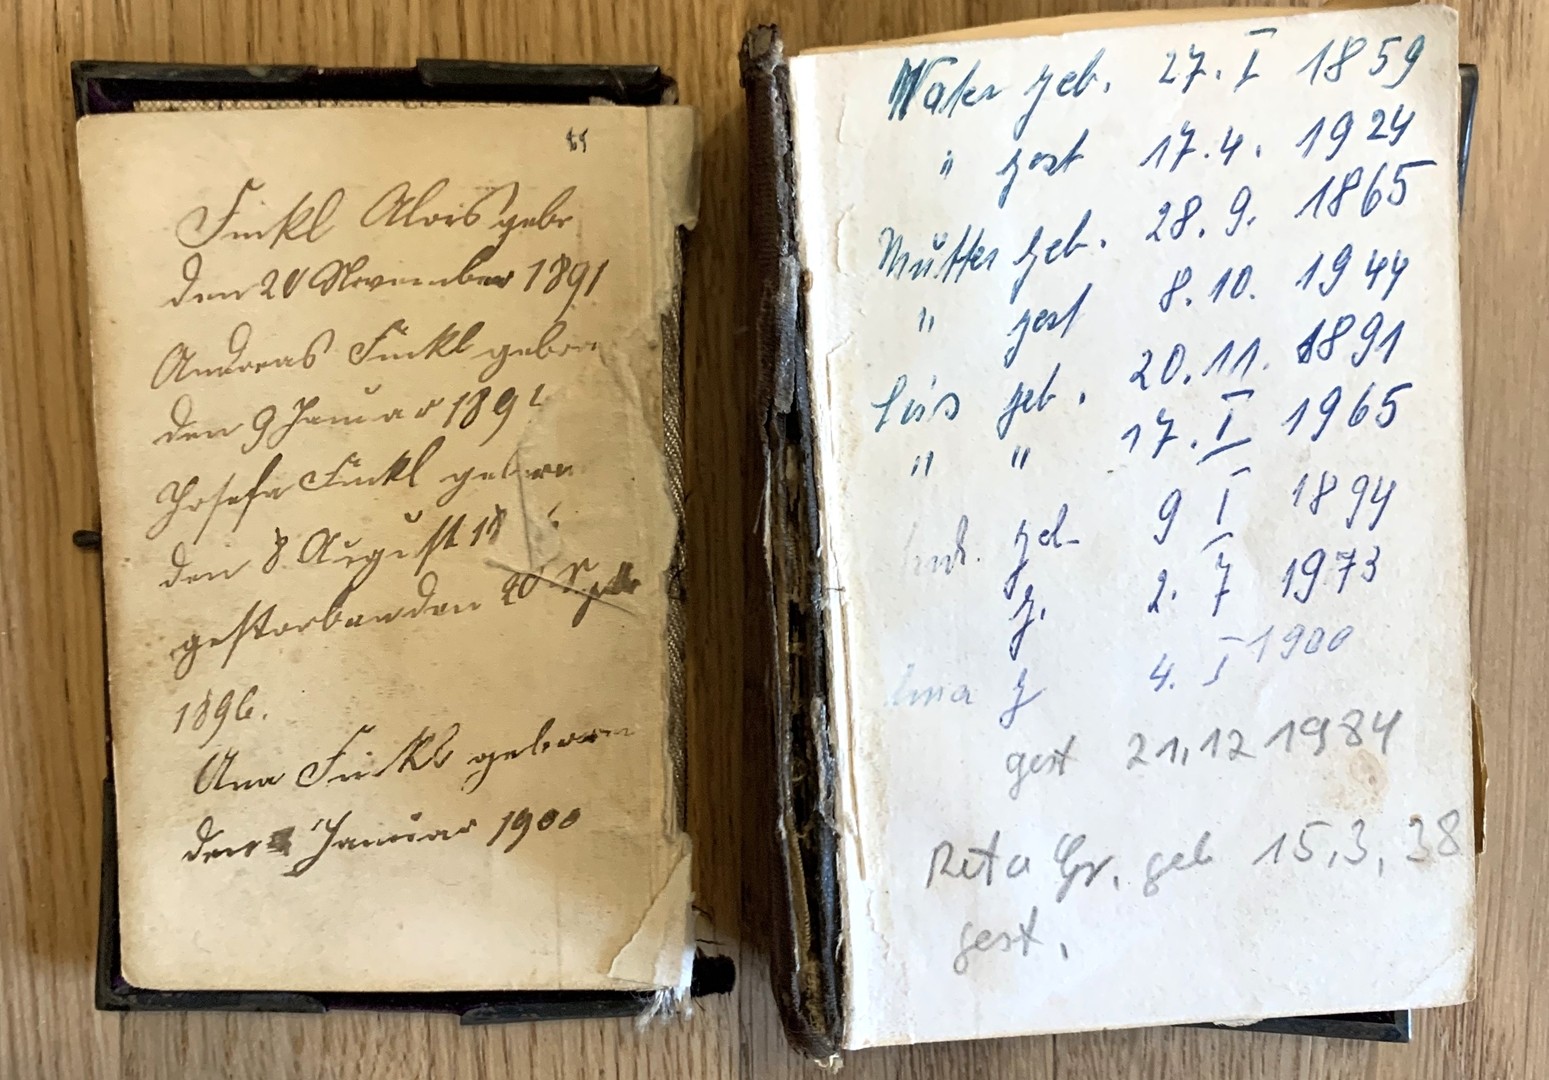 Finkl Alois gebr
den 20 November 1891
Andreas Finkl gebor
den 9 Januar 189
Josefa Finkl geborn
den 8. August 18
gestorben den 20 Sept
1896.
Ana Finkl geborn
den Januar 1900
Vater geb. 27. I 1859
" gest 17.4. 1924
Mutter geb. 28. 9. 1865
" gest 8.10. 1944
Luis geb. 20.11. 1891
" " 17. I 1965
geb. 9 I 1894
g. 2. 7 1973
Anna g 4. I 1900
gest 21,12 1984
Reta Gr. geb 15,3, 38
gest.